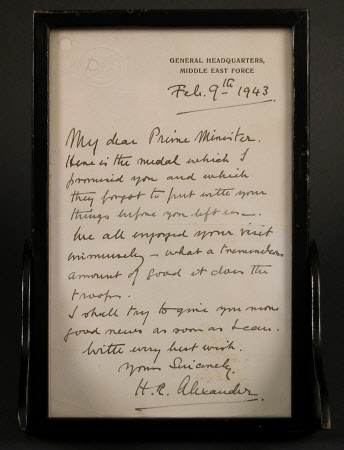 GENERAL HEADQUARTERS,
MIDDLE EAST FORCE
Feb. 9th 1943
My dear Prime Minister.
Here is the medal which I
promised you and which
they forgot to put with your
things before you left us —
We all enjoyed your visit
immensely — what a tremendous
amount of good it does the
troops.
I shall try to give you more
good news as soon as I can.
With every best wish.
Yours Sincerely.
H.R. Alexander.